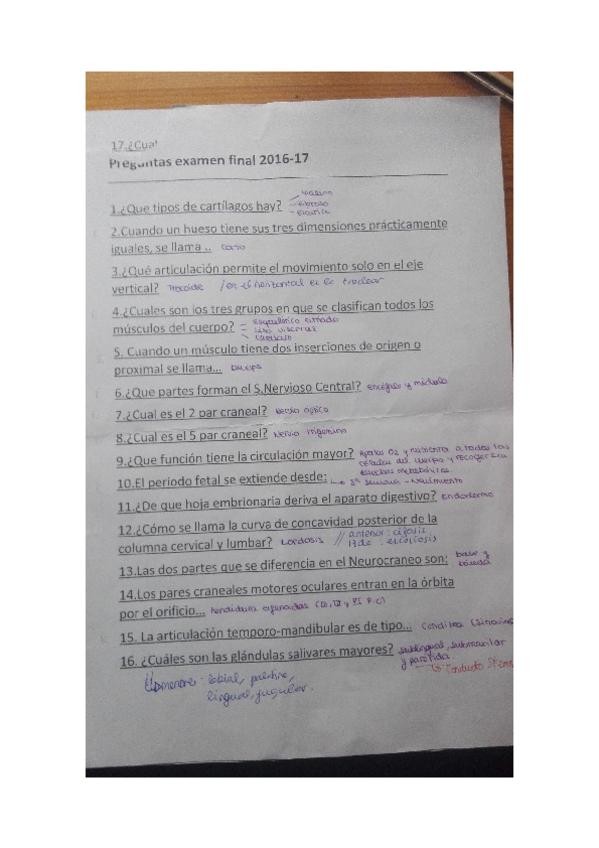 17.¿Cual
Preguntas examen final 2016-17
1.¿Que tipos de cartílagos hay? hialino
fibroso
elastico
2.Cuando un hueso tiene sus tres dimensiones prácticamente
iguales, se llama .. corto
3.¿Qué articulación permite el movimiento solo en el eje
vertical? Trocoide / en el horizontal es la troclear
4.¿Cuales son los tres grupos en que se clasifican todos los
músculos del cuerpo? Esquelético estriado
Liso visceral
Cardiaco
5. Cuando un músculo tiene dos inserciones de origen o
proximal se llama... biceps
6.¿Que partes forman el S.Nervioso Central? encéfalo y médula
7.¿Cual es el 2 par craneal? Nervio optico
8.¿Cual es el 5 par craneal? Nervio trigemino
9.¿Que función tiene la circulación mayor? Aporta O2 y nutrientes a todas las
células del cuerpo y recoger los
desechos metabólicos.
10.El periodo fetal se extiende desde: 8ª semana - Nacimiento
11.¿De que hoja embrionaria deriva el aparato digestivo? Endodermo
12.¿Cómo se llama la curva de concavidad posterior de la
columna cervical y lumbar? Lordosis // anterior: cifosis
escoliosis
13.Las dos partes que se diferencia en el Neurocraneo son: base y
bóveda
14.Los pares craneales motores oculares entran en la órbita
por el orificio... hendidura esfenoidal (III, IV y VI P.C)
15. La articulación temporo-mandibular es de tipo... Condilea
16. ¿Cuáles son las glándulas salivares mayores? sublingual, submaxilar
y parotida.
Conducto Stenon
menores: labial, palatina,
lingual, jugular.